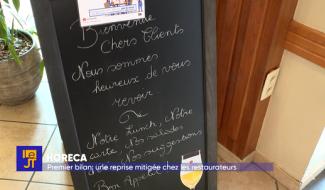 Bienvenue
Chers Clients
Nous sommes
heureux de vous
revoir.
Notre Lunch, Notre
carte, Nos salades
Nos suggestions
Bon Appétit
le
JT
HORECA
Premier bilan: une reprise mitigée chez les restaurateurs